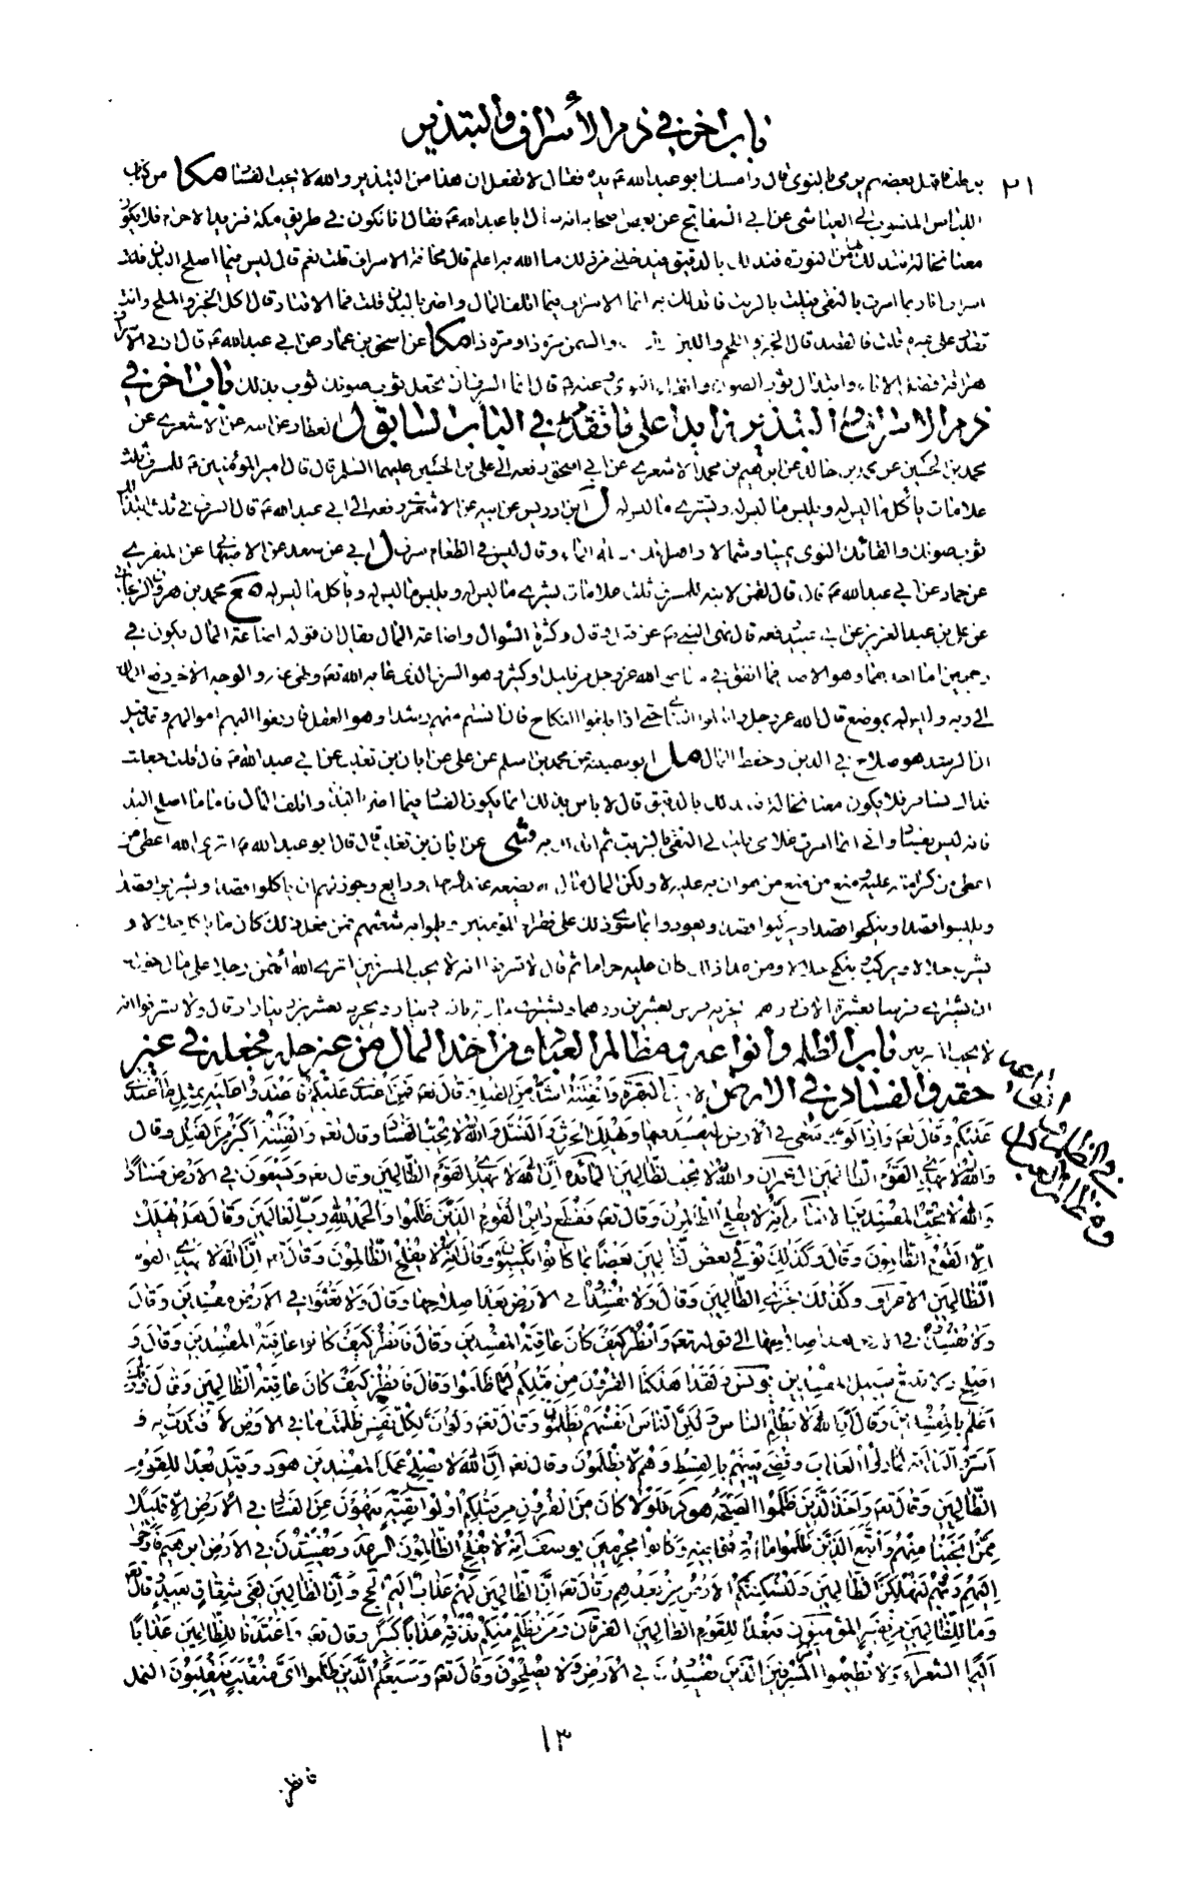 باب اخر في ذم الأسراف والتبذير
٢١
برطب فاقبل بعضهم يرمي بالنوى قال وامسك ابو عبدالله ع يده فقال لا تفعل ان هذا من التبذير والله لا يحب الفساد مكا من كتاب
اللباس المنسوب الى العياشي عن ابي السفاتج عن بعض اصحابه انه سأل ابا عبدالله ع فقال انا نكون في طريق مكة فنريد الاحرام فلا يكون
معنا نخالة نتدلك من النورة فندلك بالدقيق فيدخلني من ذلك ما الله به اعلم قال مخافة الاسراف قلت نعم قال ليس فيما اصلح البدن
اسراف انا ربما امرت بالنقي فيلت بالزيت فاتدلك به انما الاسراف فيما اتلف المال واضر بالبدن قلت فما الاقتار قال اكل الخبز والملح وانت
تقدر على غيره قلت فالقصد قال الخبز واللحم واللبن والسمن مرة ذا ومرة ذا مكا عن اسحق بن عمار عن ابي عبدالله ع قال
هراقة فضل الاناء وابتذال ثوب الصون والقاء النوى وعنه ع قال انما السرف ان تجعل ثوب صونك ثوب بذلك باب اخر في
ذم الاسراف والتبذير زايدا على ما تقدم في الباب السابق ل العطار عن ابيه عن الاشعري عن
محمد بن الحسين عن خالد عن ابرهيم بن محمد الاشعري عن ابي اسحق رفعه الى علي بن الحسين عليهما السلم قال قال امير المؤمنين ع للمسرف ثلث
علامات يأكل ما ليس له ويلبس ما ليس له ويشتري ما ليس له ل ابن ادريس عن ابيه عن الاشعري رفعه الى ابي عبدالله ع قال السرف في ثلث ابتذالك
ثوب صونك والقائك النوى يمينا وشمالا واهراقك فضلة الماء وقال ليس في الطعام سرف ل ابي عن سعد عن الاصبهاني عن المنقري
عن حماد عن ابي عبدالله ع قال قال لقمن لابنه للمسرف ثلث علامات يشتري ما ليس له ويلبس ما ليس له ويأكل ما ليس له مع محمد بن هرون الزنجاني
عن علي بن عبدالعزيز عن ابي عبيد رفعه قال نهى النبي ص عن قيل وقال وكثرة السؤال واضاعة المال يقال ان قوله اضاعة المال يكون في
وجهين اما احدهما وهو الاصل فما انفق في معاصي الله عز وجل من قليل او كثير وهو السرف الذي عابه الله تعه ونهى عنه والوجه الآخر دفع المال
الى ربه وليس له بموضع قال الله عز وجل وابتلوا اليتامى حتى اذا بلغوا النكاح فان انستم منهم رشدا وهو العقل فادفعوا اليهم اموالهم وقد قيل
ان الرشد هو صلاح في الدين وحفظ المال مل ابو سمينة عن محمد بن اسلم عن علي عن ابان بن تغلب عن ابي عبدالله ع قال قلت جعلت
فداك نسافر فلا يكون معنا نخالة فندلك بالدقيق قال لا باس بذلك انما يكون الفساد فيما اضر بالبدن واتلف المال فاما ما اصلح البدن
فانه ليس بفساد واني انما امرت غلامي فلت لي النقي بالزيت ثم اتدلك به شى عن ابان بن تغلب قال قال ابو عبدالله ع اترى الله اعطى من
اعطى من كرامته عليه ومنع من منع من هوان به عليه لا ولكن المال مال الله يضعه عند الرجل ودايع وجوز لهم ان ياكلوا قصدا ويشربوا قصدا
ويلبسوا قصدا وينكحوا قصدا ويركبوا قصدا ويعودوا بما سوى ذلك على فقراء المؤمنين ويلموا به شعثهم فمن فعل ذلك كان ما ياكل حلالا و
يشرب حلالا ويركب وينكح حلالا ومن عدا ذلك كان عليه حراما ثم قال لا تسرفوا انه لا يحب المسرفين اترى الله ائتمن رجلا على مال
ان يشتري فرسا بعشرة الاف درهم ويجزيه فرس بعشرين درهما ويشتري جارية بالف دينار ويجزيه بعشرين دينارا وقال ولا تسرفوا انه
لا يحب المسرفين باب الظلم وأنواعه ومظالم العباد ومن اخذ المال من غير حله فجعله في غير
حقه والفساد في الارض البقرة والفتنة اشد من القتل وقال تعه فمن اعتدى عليكم فاعتدوا عليه بمثل ما اعتدى
عليكم وقال تعه واذا تولى سعى في الأرض ليفسد فيها ويهلك الحرث والنسل والله لا يحب الفساد وقال تعه والفتنة اكبر من القتل وقال
والله لا يهدي القوم الظالمين ال عمران والله لا يحب الظالمين المائدة ان الله لا يهدي القوم الظالمين وقال تعه ويسعون في الارض فسادا
والله لا يحب المفسدين الانعام انه لا يفلح الظالمون وقال تعه فقطع دابر القوم الذين ظلموا والحمد لله رب العالمين وقال هل يهلك
الا القوم الظالمون وقال وكذلك نولي بعض الظالمين بعضا بما كانوا يكسبون وقال انه لا يفلح الظالمون وقال تعه ان الله لا يهدي القوم
الظالمين الاعراف وكذلك نجزي الظالمين وقال ولا تفسدوا في الارض بعد اصلاحها وقال ولا تعثوا في الارض مفسدين وقال
ولا تفسدوا في الارض بعد اصلاحها الى قوله تعه وانظروا كيف كان عاقبة المفسدين وقال فانظر كيف كانوا عاقبة المفسدين وقال و
اصلح ولا تتبع سبيل المفسدين يونس ولقد اهلكنا القرون من قبلكم لما ظلموا وقال فانظر كيف كان عاقبة الظالمين وقال وربك
اعلم بالمفسدين وقال ان الله لا يظلم الناس ولكن الناس انفسهم يظلمون وقال تعه ولو ان لكل نفس ظلمت ما في الارض لافتدت به و
اسروا الندامة لما راوا العذاب وقضي بينهم بالقسط وهم لا يظلمون وقال تعه ان الله لا يصلح عمل المفسدين هود وقيل بعدا للقوم
الظالمين وقال تعه واخذ الذين ظلموا الصيحة هود فلولا كان من القرون من قبلكم اولوا بقية ينهون عن الفساد في الأرض الا قليلا
ممن نجينا منهم واتبع الذين ظلموا ما اترفوا فيه وكانوا مجرمين يوسف انه لا يفلح الظالمون الرعد ويفسدون في الارض ابرهيم فاوحى
اليهم ربهم لنهلكن الظالمين ولنسكننكم الارض من بعدهم وقال تعه ان الظالمين لهم عذاب اليم الحج وان الظالمين لفي شقاق بعيد وقال تعه
وما للظالمين من نصير المؤمنون فبعدا للقوم الظالمين الفرقان ومن يظلم منكم نذقه عذابا كبيرا وقال تعه واعتدنا للظالمين عذابا
اليما الشعراء ولا تطيعوا امر المسرفين الذين يفسدون في الأرض ولا يصلحون وقال تعه وسيعلم الذين ظلموا اي منقلب ينقلبون النمل
١٣
فانظر